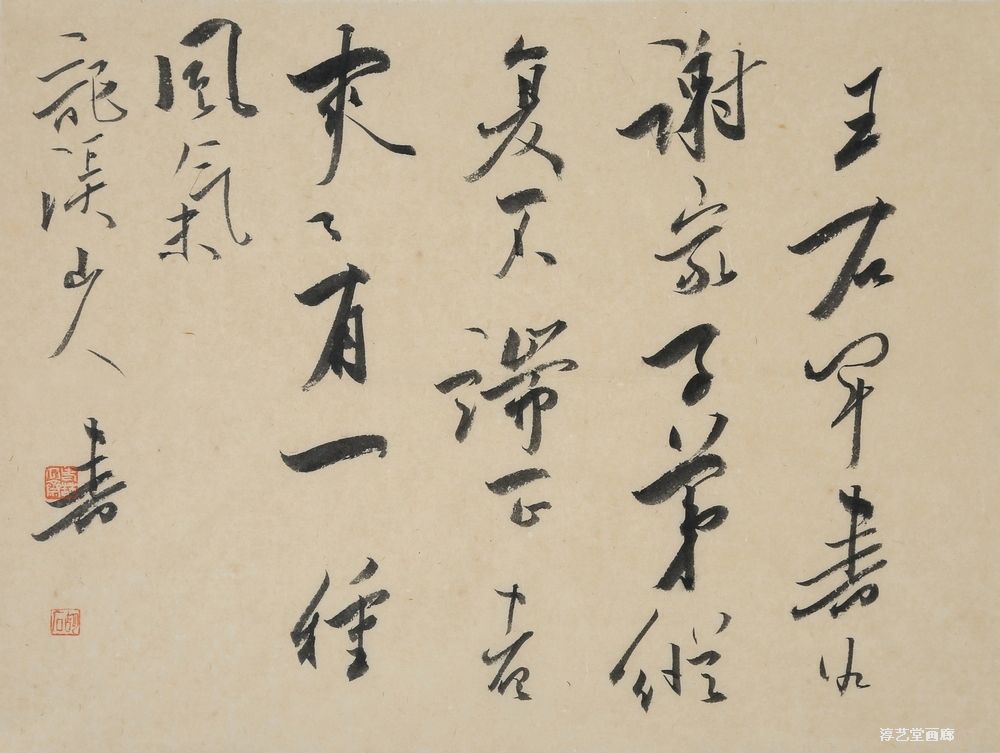 王右軍書如
謝家子弟縱
复不端正者
爽〻有一種
風氣
龍渠山人 書
淳艺堂画廊